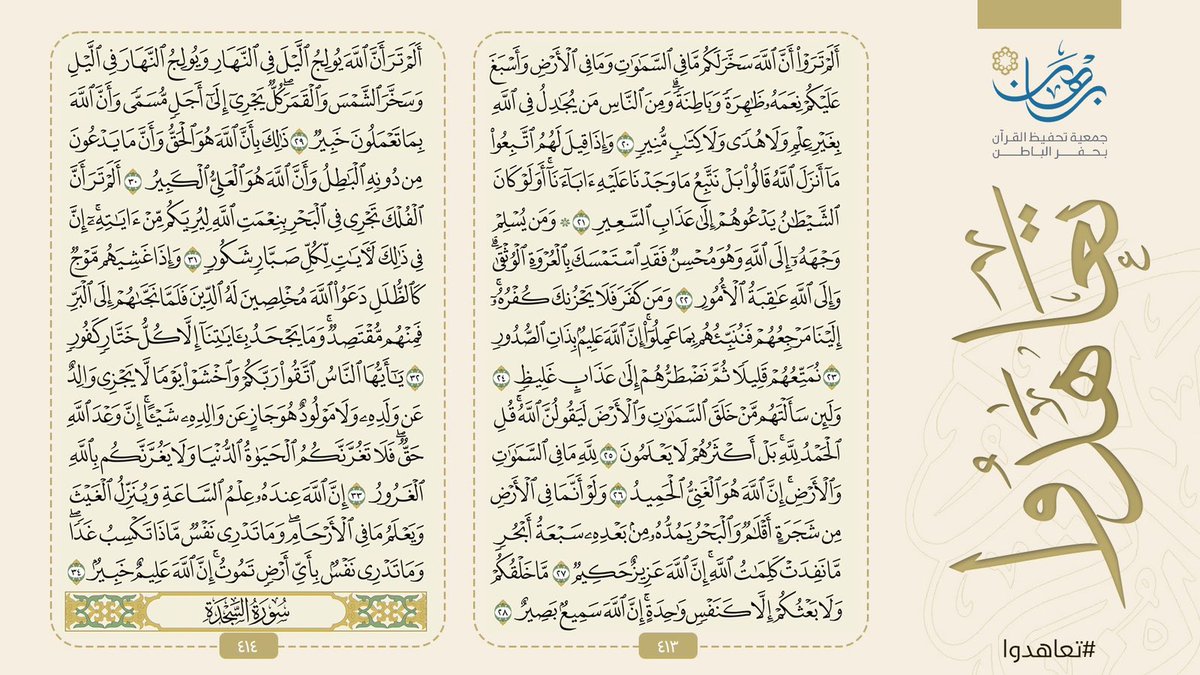 أَلَمْ تَرَوْا۟ أَنَّ ٱللَّهَ سَخَّرَ لَكُم مَّا فِى ٱلسَّمَٰوَٰتِ وَمَا فِى ٱلْأَرْضِ وَأَسْبَغَ
عَلَيْكُمْ نِعَمَهُۥ ظَٰهِرَةً وَبَاطِنَةً ۗ وَمِنَ ٱلنَّاسِ مَن يُجَٰدِلُ فِى ٱللَّهِ
بِغَيْرِ عِلْمٍ وَلَا هُدًى وَلَا كِتَٰبٍ مُّنِيرٍ ٢٠ وَإِذَا قِيلَ لَهُمُ ٱتَّبِعُوا۟
مَآ أَنزَلَ ٱللَّهُ قَالُوا۟ بَلْ نَتَّبِعُ مَا وَجَدْنَا عَلَيْهِ ءَابَآءَنَآ ۚ أَوَلَوْ كَانَ
ٱلشَّيْطَٰنُ يَدْعُوهُمْ إِلَىٰ عَذَابِ ٱلسَّعِيرِ ٢١ ۞ وَمَن يُسْلِمْ
وَجْهَهُۥٓ إِلَى ٱللَّهِ وَهُوَ مُحْسِنٌ فَقَدِ ٱسْتَمْسَكَ بِٱلْعُرْوَةِ ٱلْوُثْقَىٰ ۗ
وَإِلَى ٱللَّهِ عَٰقِبَةُ ٱلْأُمُورِ ٢٢ وَمَن كَفَرَ فَلَا يَحْزُنكَ كُفْرُهُۥٓ ۚ
إِلَيْنَا مَرْجِعُهُمْ فَنُنَبِّئُهُم بِمَا عَمِلُوٓا۟ ۚ إِنَّ ٱللَّهَ عَلِيمٌۢ بِذَاتِ ٱلصُّدُورِ
٢٣ نُمَتِّعُهُمْ قَلِيلًا ثُمَّ نَضْطَرُّهُمْ إِلَىٰ عَذَابٍ غَلِيظٍ ٢٤
وَلَئِن سَأَلْتَهُم مَّنْ خَلَقَ ٱلسَّمَٰوَٰتِ وَٱلْأَرْضَ لَيَقُولُنَّ ٱللَّهُ ۚ قُلِ
ٱلْحَمْدُ لِلَّهِ ۚ بَلْ أَكْثَرُهُمْ لَا يَعْلَمُونَ ٢٥ لِلَّهِ مَا فِى ٱلسَّمَٰوَٰتِ
وَٱلْأَرْضِ ۚ إِنَّ ٱللَّهَ هُوَ ٱلْغَنِىُّ ٱلْحَمِيدُ ٢٦ وَلَوْ أَنَّمَا فِى ٱلْأَرْضِ
مِن شَجَرَةٍ أَقْلَٰمٌ وَٱلْبَحْرُ يَمُدُّهُۥ مِنۢ بَعْدِهِۦ سَبْعَةُ أَبْحُرٍ
مَّا نَفِدَتْ كَلِمَٰتُ ٱللَّهِ ۗ إِنَّ ٱللَّهَ عَزِيزٌ حَكِيمٌ ٢٧ مَّا خَلْقُكُمْ
وَلَا بَعْثُكُمْ إِلَّا كَنَفْسٍ وَٰحِدَةٍ ۗ إِنَّ ٱللَّهَ سَمِيعٌۢ بَصِيرٌ ٢٨
٤١٣
أَلَمْ تَرَ أَنَّ ٱللَّهَ يُولِجُ ٱلَّيْلَ فِى ٱلنَّهَارِ وَيُولِجُ ٱلنَّهَارَ فِى ٱلَّيْلِ
وَسَخَّرَ ٱلشَّمْسَ وَٱلْقَمَرَ ۖ كُلٌّ يَجْرِىٓ إِلَىٰٓ أَجَلٍ مُّسَمًّى وَأَنَّ ٱللَّهَ
بِمَا تَعْمَلُونَ خَبِيرٌ ٢٩ ذَٰلِكَ بِأَنَّ ٱللَّهَ هُوَ ٱلْحَقُّ وَأَنَّ مَا يَدْعُونَ
مِن دُونِهِ ٱلْبَٰطِلُ وَأَنَّ ٱللَّهَ هُوَ ٱلْعَلِىُّ ٱلْكَبِيرُ ٣٠ أَلَمْ تَرَ أَنَّ
ٱلْفُلْكَ تَجْرِى فِى ٱلْبَحْرِ بِنِعْمَتِ ٱللَّهِ لِيُرِيَكُم مِّنْ ءَايَٰتِهِۦٓ ۚ إِنَّ
فِى ذَٰلِكَ لَءَايَٰتٍ لِّكُلِّ صَبَّارٍ شَكُورٍ ٣١ وَإِذَا غَشِيَهُم مَّوْجٌ
كَٱلظُّلَلِ دَعَوُا۟ ٱللَّهَ مُخْلِصِينَ لَهُ ٱلدِّينَ فَلَمَّا نَجَّىٰهُمْ إِلَى ٱلْبَرِّ
فَمِنْهُم مُّقْتَصِدٌ ۚ وَمَا يَجْحَدُ بِـَٔايَٰتِنَآ إِلَّا كُلُّ خَتَّارٍ كَفُورٍ
٣٢ يَٰٓأَيُّهَا ٱلنَّاسُ ٱتَّقُوا۟ رَبَّكُمْ وَٱخْشَوْا۟ يَوْمًا لَّا يَجْزِى وَالِدٌ
عَن وَلَدِهِۦ وَلَا مَوْلُودٌ هُوَ جَازٍ عَن وَالِدِهِۦ شَيْـًٔا ۚ إِنَّ وَعْدَ ٱللَّهِ
حَقٌّ ۖ فَلَا تَغُرَّنَّكُمُ ٱلْحَيَوٰةُ ٱلدُّنْيَا وَلَا يَغُرَّنَّكُم بِٱللَّهِ
ٱلْغَرُورُ ٣٣ إِنَّ ٱللَّهَ عِندَهُۥ عِلْمُ ٱلسَّاعَةِ وَيُنَزِّلُ ٱلْغَيْثَ
وَيَعْلَمُ مَا فِى ٱلْأَرْحَامِ ۖ وَمَا تَدْرِى نَفْسٌ مَّاذَا تَكْسِبُ غَدًا ۖ
وَمَا تَدْرِى نَفْسٌۢ بِأَىِّ أَرْضٍ تَمُوتُ ۚ إِنَّ ٱللَّهَ عَلِيمٌ خَبِيرٌۢ ٣٤
سُورَةُ السَّجْدَةِ
٤١٤
برهان
جمعية تحفيظ القرآن
بحفر الباطن
تعاهدوا
#تعاهدوا